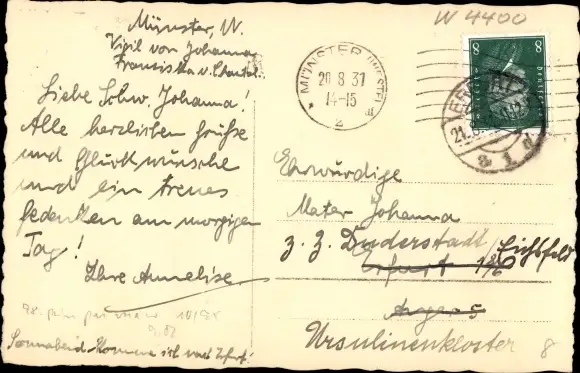 W 4400
Münster, W.
Vigil von Johanna
Franziska v. Chantal.
Liebe Schw. Johanna!
Alle herzlichen Grüsse
und Glückwünsche
und ein treues
Gedenken am morgigen
Tag!
Ihre Annelise.
Sonnabend komme ich nach Erfurt!
MÜNSTER (WESTF)
20 8 31
14-15
2
8 8
Deutsches Reich
ERFURT
21.8
1 d
Ehrwürdige
Mater Johanna
z. Z. Duderstadt, Eichsfeld
Erfurt
Anger 5
Ursulinenkloster
8